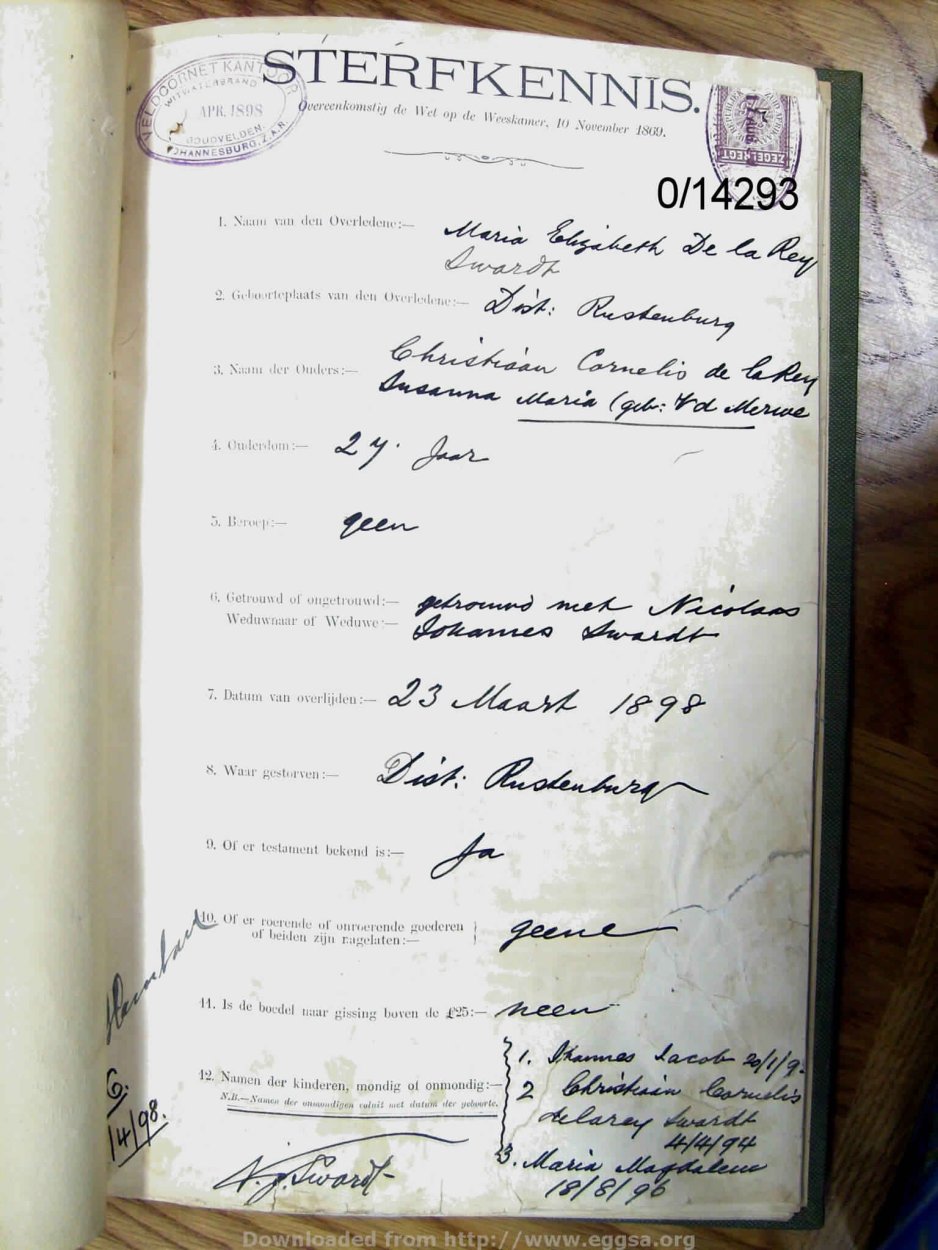 VELDCORNET KANTOOR
WITWATERSRAND
APR. 1898
GOUDVELDEN.
JOHANNESBURG. Z.A.R.
STERFKENNIS.
Overeenkomstig de Wet op de Weeskamer, 10 November 1869.
ZEGELREGT
0/14293
1. Naam van den Overledene:— Maria Elizabeth De la Rey
Swardt
2. Geboorteplaats van den Overledene:— Dist: Rustenburg
3. Naam der Ouders:— Christiaan Cornelis de la Rey
Susanna Maria (geb: V d Merwe
4. Ouderdom:— 27. Jaar
5. Beroep:— geen
6. Getrouwd of ongetrouwd:— getrouwd met Nicolaas
Weduwnaar of Weduwe:— Johannes Swardt
7. Datum van overlijden:— 23 Maart 1898
8. Waar gestorven:— Dist: Rustenburg
9. Of er testament bekend is:— Ja
10. Of er roerende of onroerende goederen
of beiden zijn nagelaten:— geene
11. Is de boedel naar gissing boven de £25:— neen
12. Namen der kinderen, mondig of onmondig:—
N.B.—Namen der onmondigen voluit met datum der geboorte.
1. Johannes Jacob 20/1/9
2 Christiaan Cornelis
delarey Swardt
4/4/94
3. Maria Magdalena
18/8/96
N. J. Swardt
6.
/4/98.
Downloaded from http://www.eggsa.org